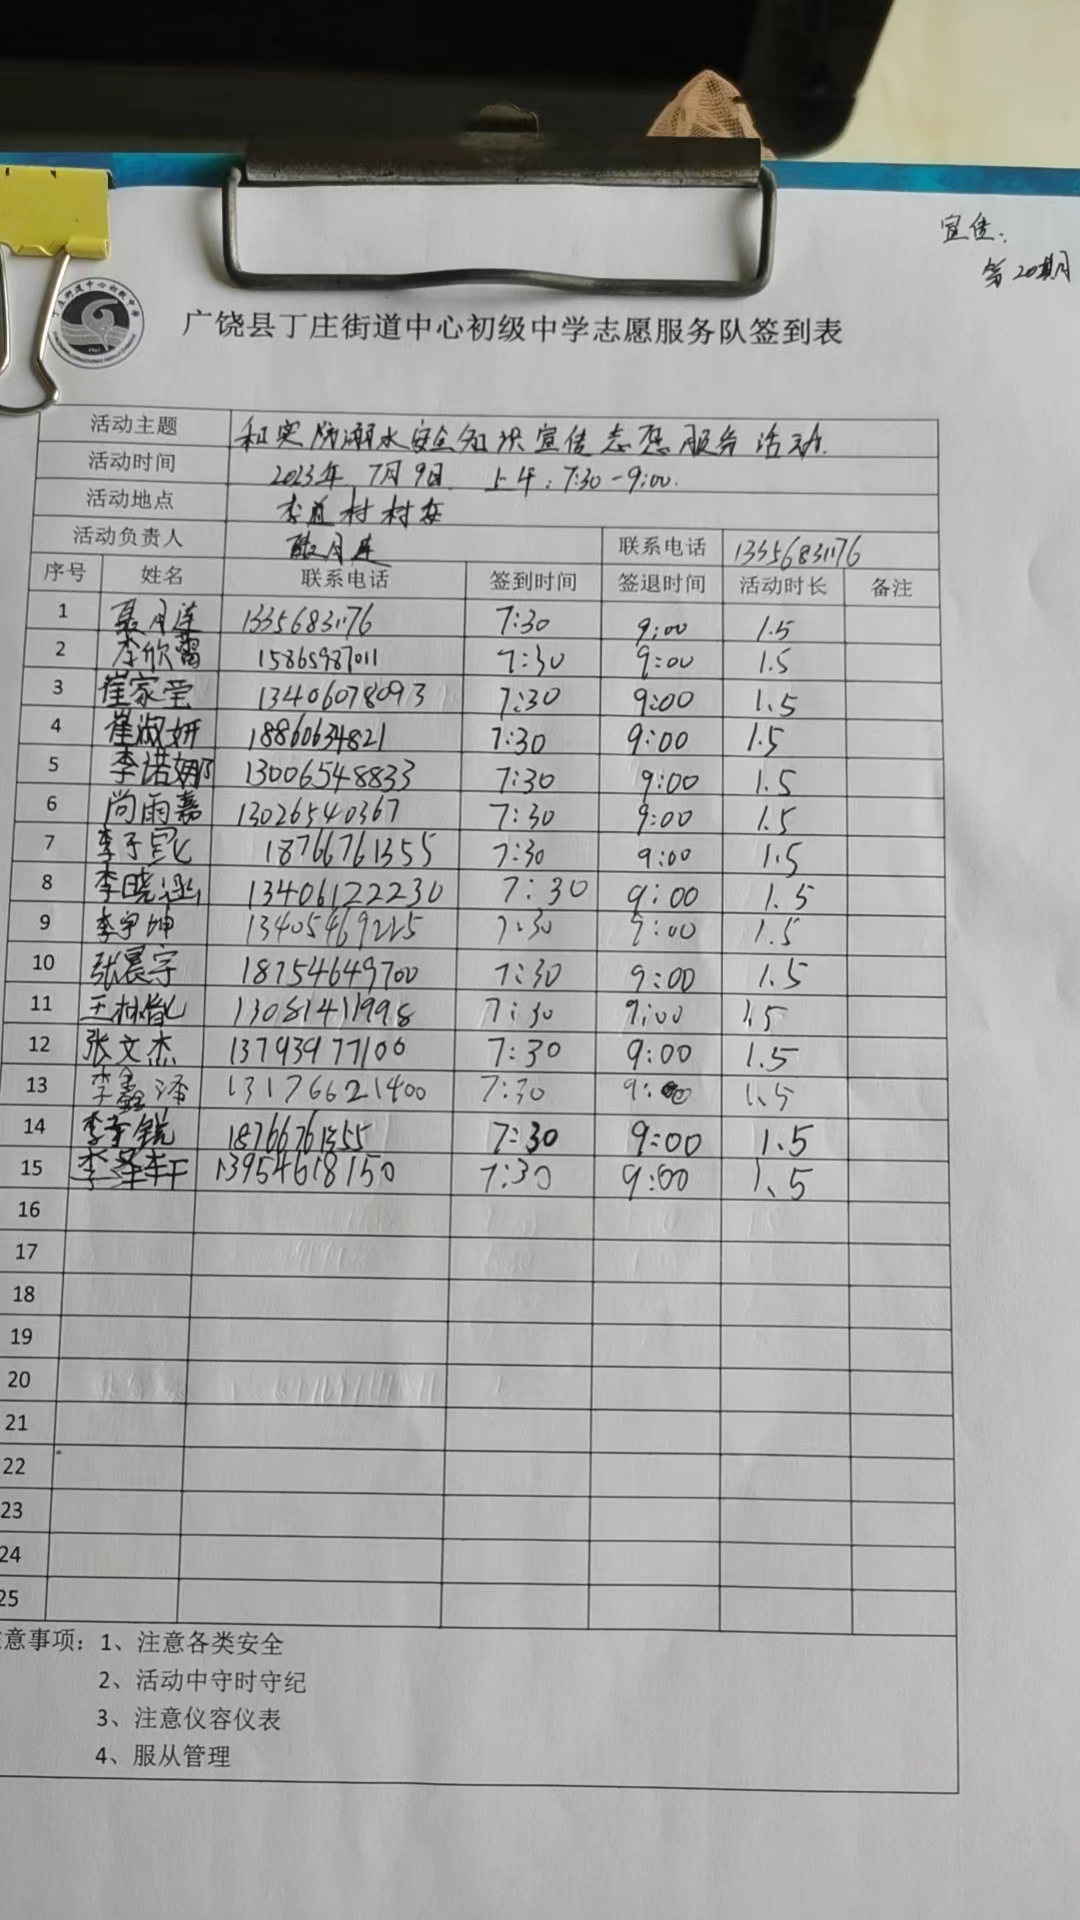 宣传:
第20期
广饶县丁庄街道中心初级中学志愿服务队签到表
活动主题 和实防溺水安全知识宣传志愿服务活动.
活动时间 2023年 7月9日 上午:7:30-9:00.
活动地点 李道村村委
活动负责人 聂月连 联系电话 13356831176
序号 姓名 联系电话 签到时间 签退时间 活动时长 备注
1 聂月连 13356831176 7:30 9:00 1.5
2 李欣蕾 15865987011 7:30 9:00 1.5
3 崔家莹 13406078093 7:30 9:00 1.5
4 崔淑妍 18860634821 7:30 9:00 1.5
5 李诺娜 13006548833 7:30 9:00 1.5
6 尚雨嘉 13026540367 7:30 9:00 1.5
7 李子 18766761355 7:30 9:00 1.5
8 李晓涵 13406122230 7:30 9:00 1.5
9 李宇坤 13405469225 7:30 9:00 1.5
10 张晨宇 18754649700 7:30 9:00 1.5
11 王林 13081411998 7:30 9:00 1.5
12 张文杰 13793977106 7:30 9:00 1.5
13 李鑫泽 13176621400 7:30 9:00 1.5
14 李 锐 18766761355 7:30 9:00 1.5
15 李泽轩 13954618150 7:30 9:00 1.5
16
17
18
19
20
21
22
23
24
25
意事项：1、注意各类安全
2、活动中守时守纪
3、注意仪容仪表
4、服从管理